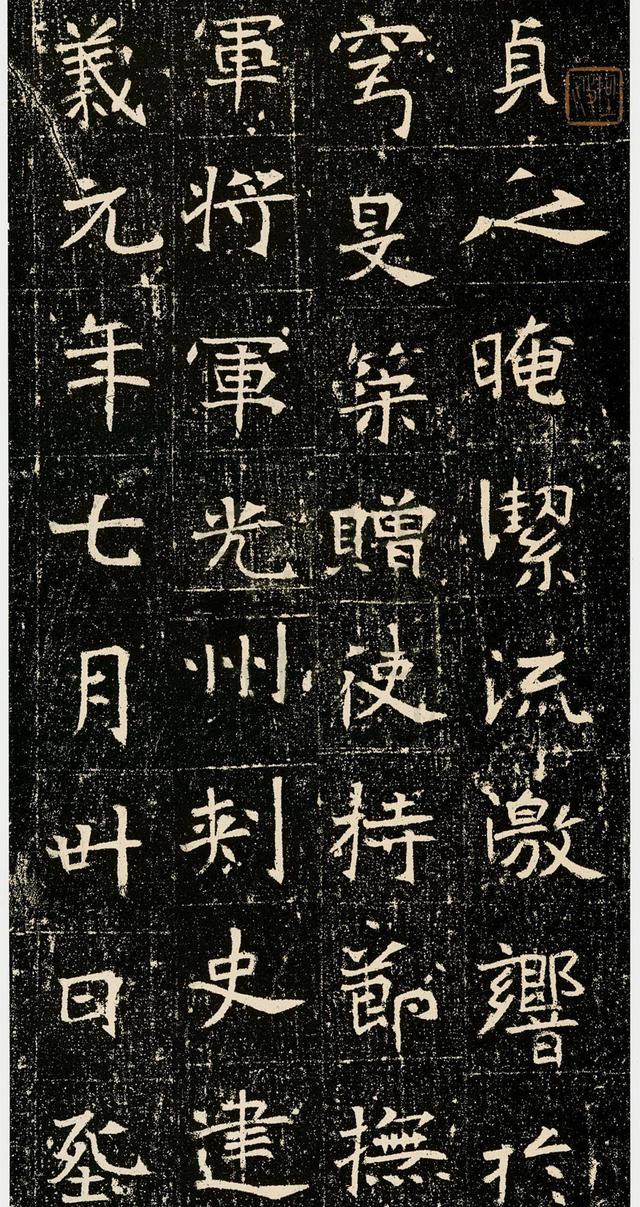 貞之晻潔流激響於
穹旻築贈使持節撫
軍將軍光州刺史建
義元年七月卅日